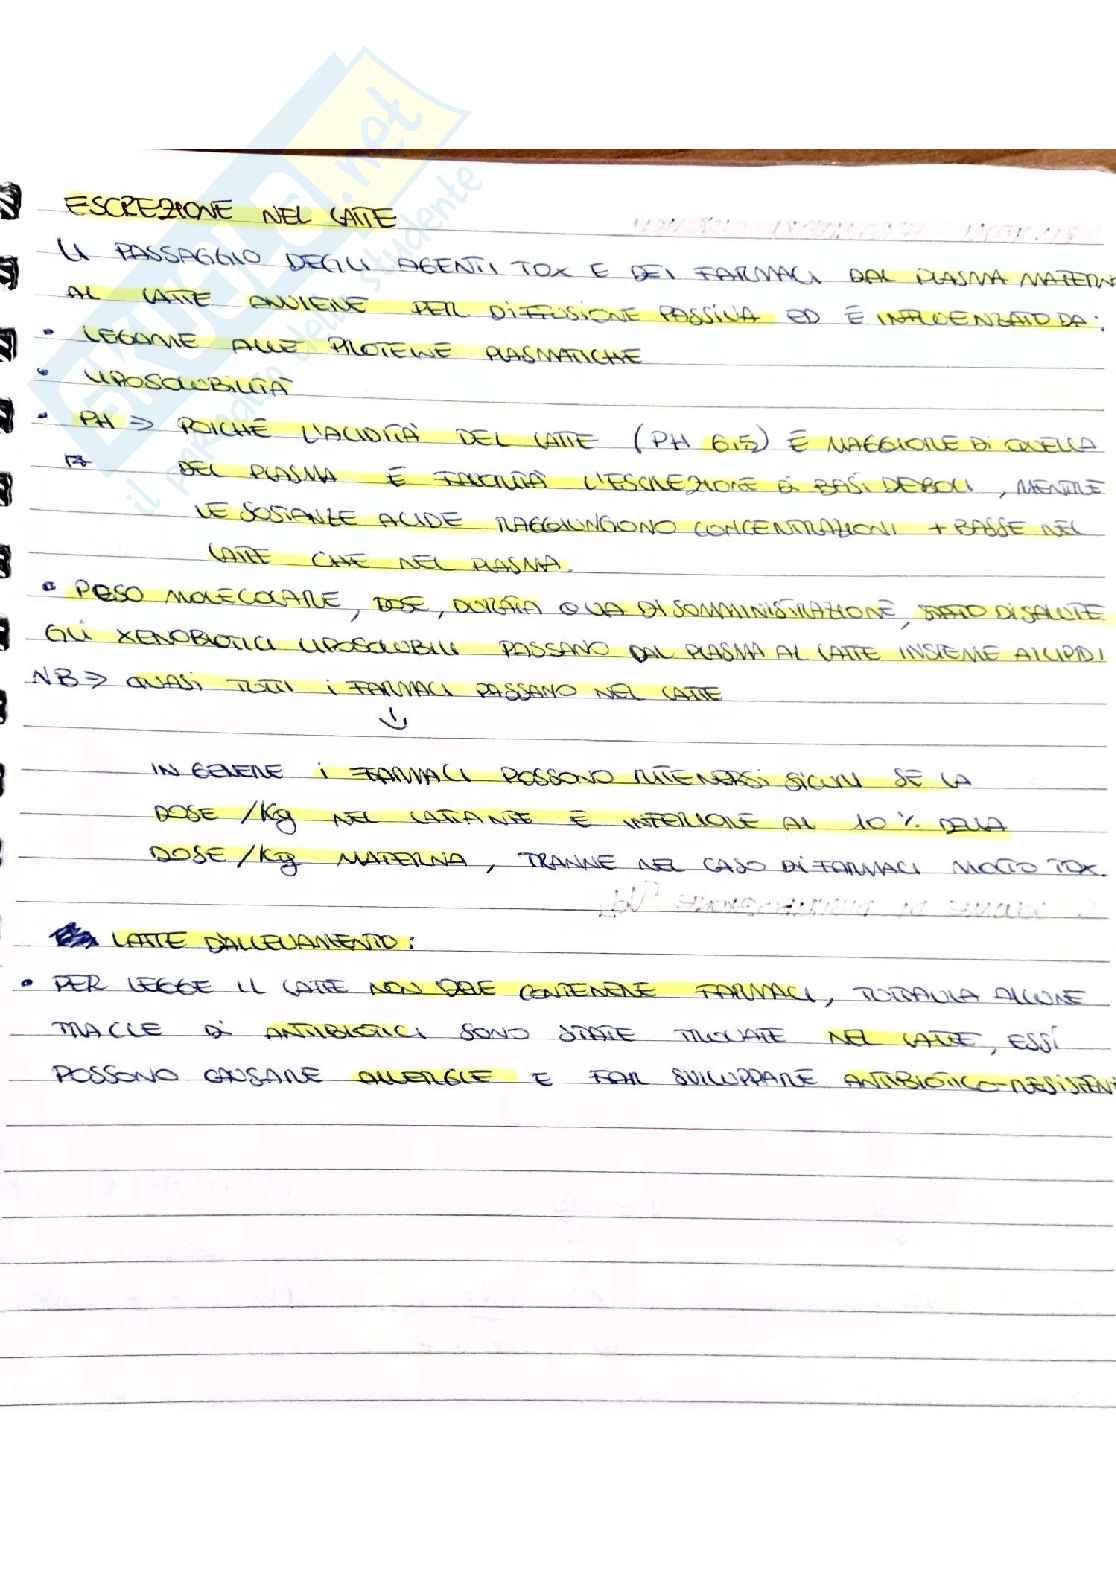 ESCREZIONE NEL LATTE
IL PASSAGGIO DEGLI AGENTI TOX E DEI FARMACI DAL PLASMA MATERN
AL LATTE AVVIENE PER DIFFUSIONE PASSIVA ED È INFLUENZATO DA:
• LEGAME ALLE PROTEINE PLASMATICHE
• LIPOSOLUBILITÀ
• PH => POICHÈ L'ACIDITÀ DEL LATTE (PH 6.5) È MAGGIORE DI QUELLA
DEL PLASMA È FACILITÀ L'ESCREZIONE di BASI DEBOLI, MENTRE
LE SOSTANZE ACIDE RAGGIUNGONO CONCENTRAZIONI + BASSE NEL
LATTE CHE NEL PLASMA.
• PESO MOLECOLARE, DOSE, DURATA O VIA DI SOMMINISTRAZIONE, STATO DI SALUTE
GLI XENOBIOTICI LIPOSOLUBILI PASSANO DAL PLASMA AL LATTE INSIEME AI LIPIDI
NB => QUASI TUTTI i FARMACI PASSANO NEL LATTE
IN GENERE i FARMACI POSSONO RITENERSI SICURI SE LA
DOSE/Kg NEL LATTANTE È INFERIORE AL 10% DELLA
DOSE/Kg MATERNA, TRANNE NEL CASO DI FARMACI MOLTO TOX.
LATTE D'ALLEVAMENTO:
• PER LEGGE IL LATTE NON DEVE CONTENERE FARMACI, TUTTAVIA ALCUNE
TRACCE DI ANTIBIOTICI SONO STATE TROVATE NEL LATTE, ESSI
POSSONO CAUSARE ALLERGIE E FAR SVILUPPARE ANTIBIOTICO-RESISTEN
SKUOLA.net
il paradiso dello studente